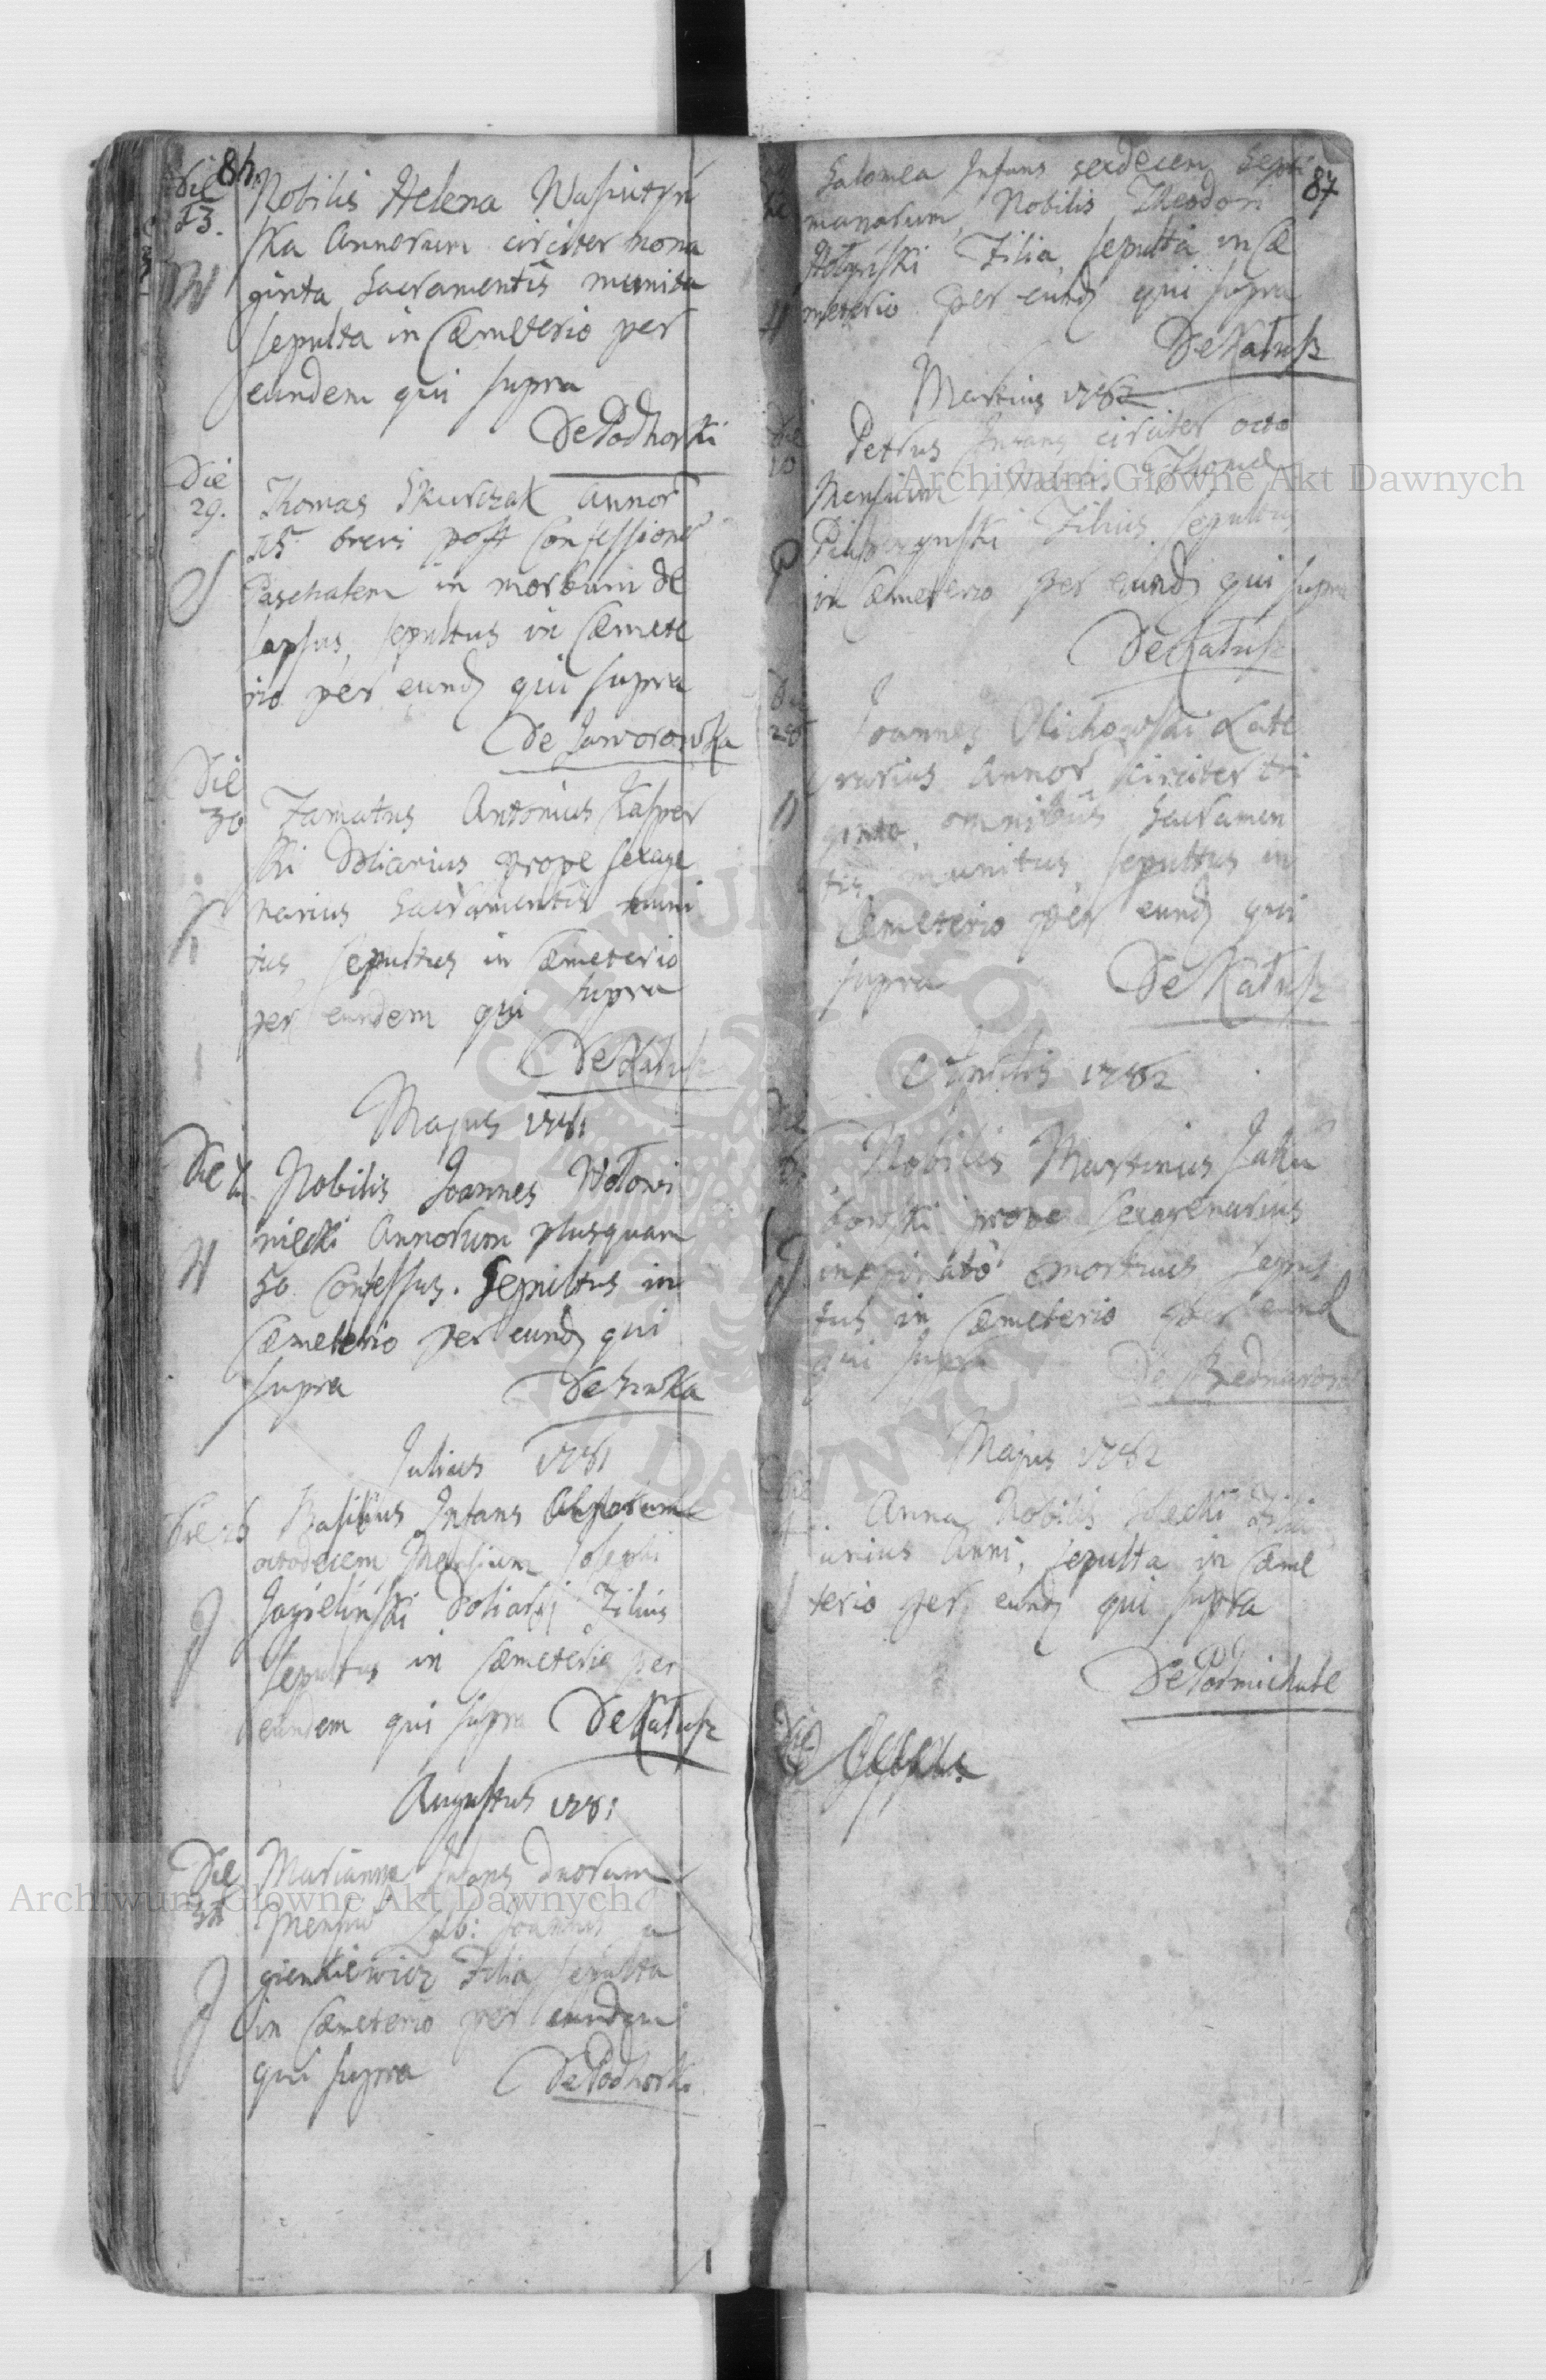 86
Die
13.
W
Nobilis Helena Wasiutyń
ska Annorum circiter nona
ginta Sacramentis munita
sepulta in Cæmeterio per
eundem qui supra
De Podhorki
Die
29.
S
Thomas Skurczak annor
15 brevi post Confessionē
Paschalem in morbum de
lapsus, sepultus in Cæmete
rio per eund qui supra
De Jaworowka
Die
30
Famatus Antonius Kasper
ski Doliarius prope sexage
narius Sacramentis muni
tus, sepultus in Cæmeterio
per eundem qui supra
De Kałusz
Majus 1781
Die
W
Nobilis Joannes Wołowi
niecki Annorum plusquam
50 Confessus. Sepultus in
Cæmeterio per eund qui
supra De Siwka
Julius 1781
Die
J
Basilius Infans
octodecem Mensium Josephi
Jagieliński Doliarij Filius
Sepultus in Cæmeterio per
eundem qui supra De Kałusz
Augustus 1781
Die
J
Marianna Infans duorum
Mensiū Lab: Joannis
gienkiewicz Filia sepulta
in Cæmeterio per eundem
qui supra De Podhorki
87
Salomea Infans sexdecem Septi
manarum, Nobilis Theodori
Hołyński Filia, sepulta in Cæ
H
meterio per eund qui supra
De Kałusz
Martius 1782
Die
10
P
Petrus Infans circiter octo
Mensium Thomæ
Filius sepultus
in Cæmeterio per eund qui supra
De Kałusz
Die
Joannes Olichowski Late
rarius Annor circiter tri
ginta, omnibus Sacramen
tis munitus, sepultus in
Cæmeterio per eund qui
supra De Kałusz
Aprilis 1782
Die
J
Nobilis Martinus Jaku
bowski prope sexagenarius
inopinato mortuus sepul
tus in Cæmeterio per eund
qui supra De Bednarow
Majus 1782
Anna Nobilis Filia
unius Anni, sepulta in Cæme
terio per eund qui supra
De Podmichale
Die
Archiwum Główne Akt Dawnych
Archiwum Główne Akt Dawnych
ARCHIWUM GŁÓWNE AKT DAWNYCH